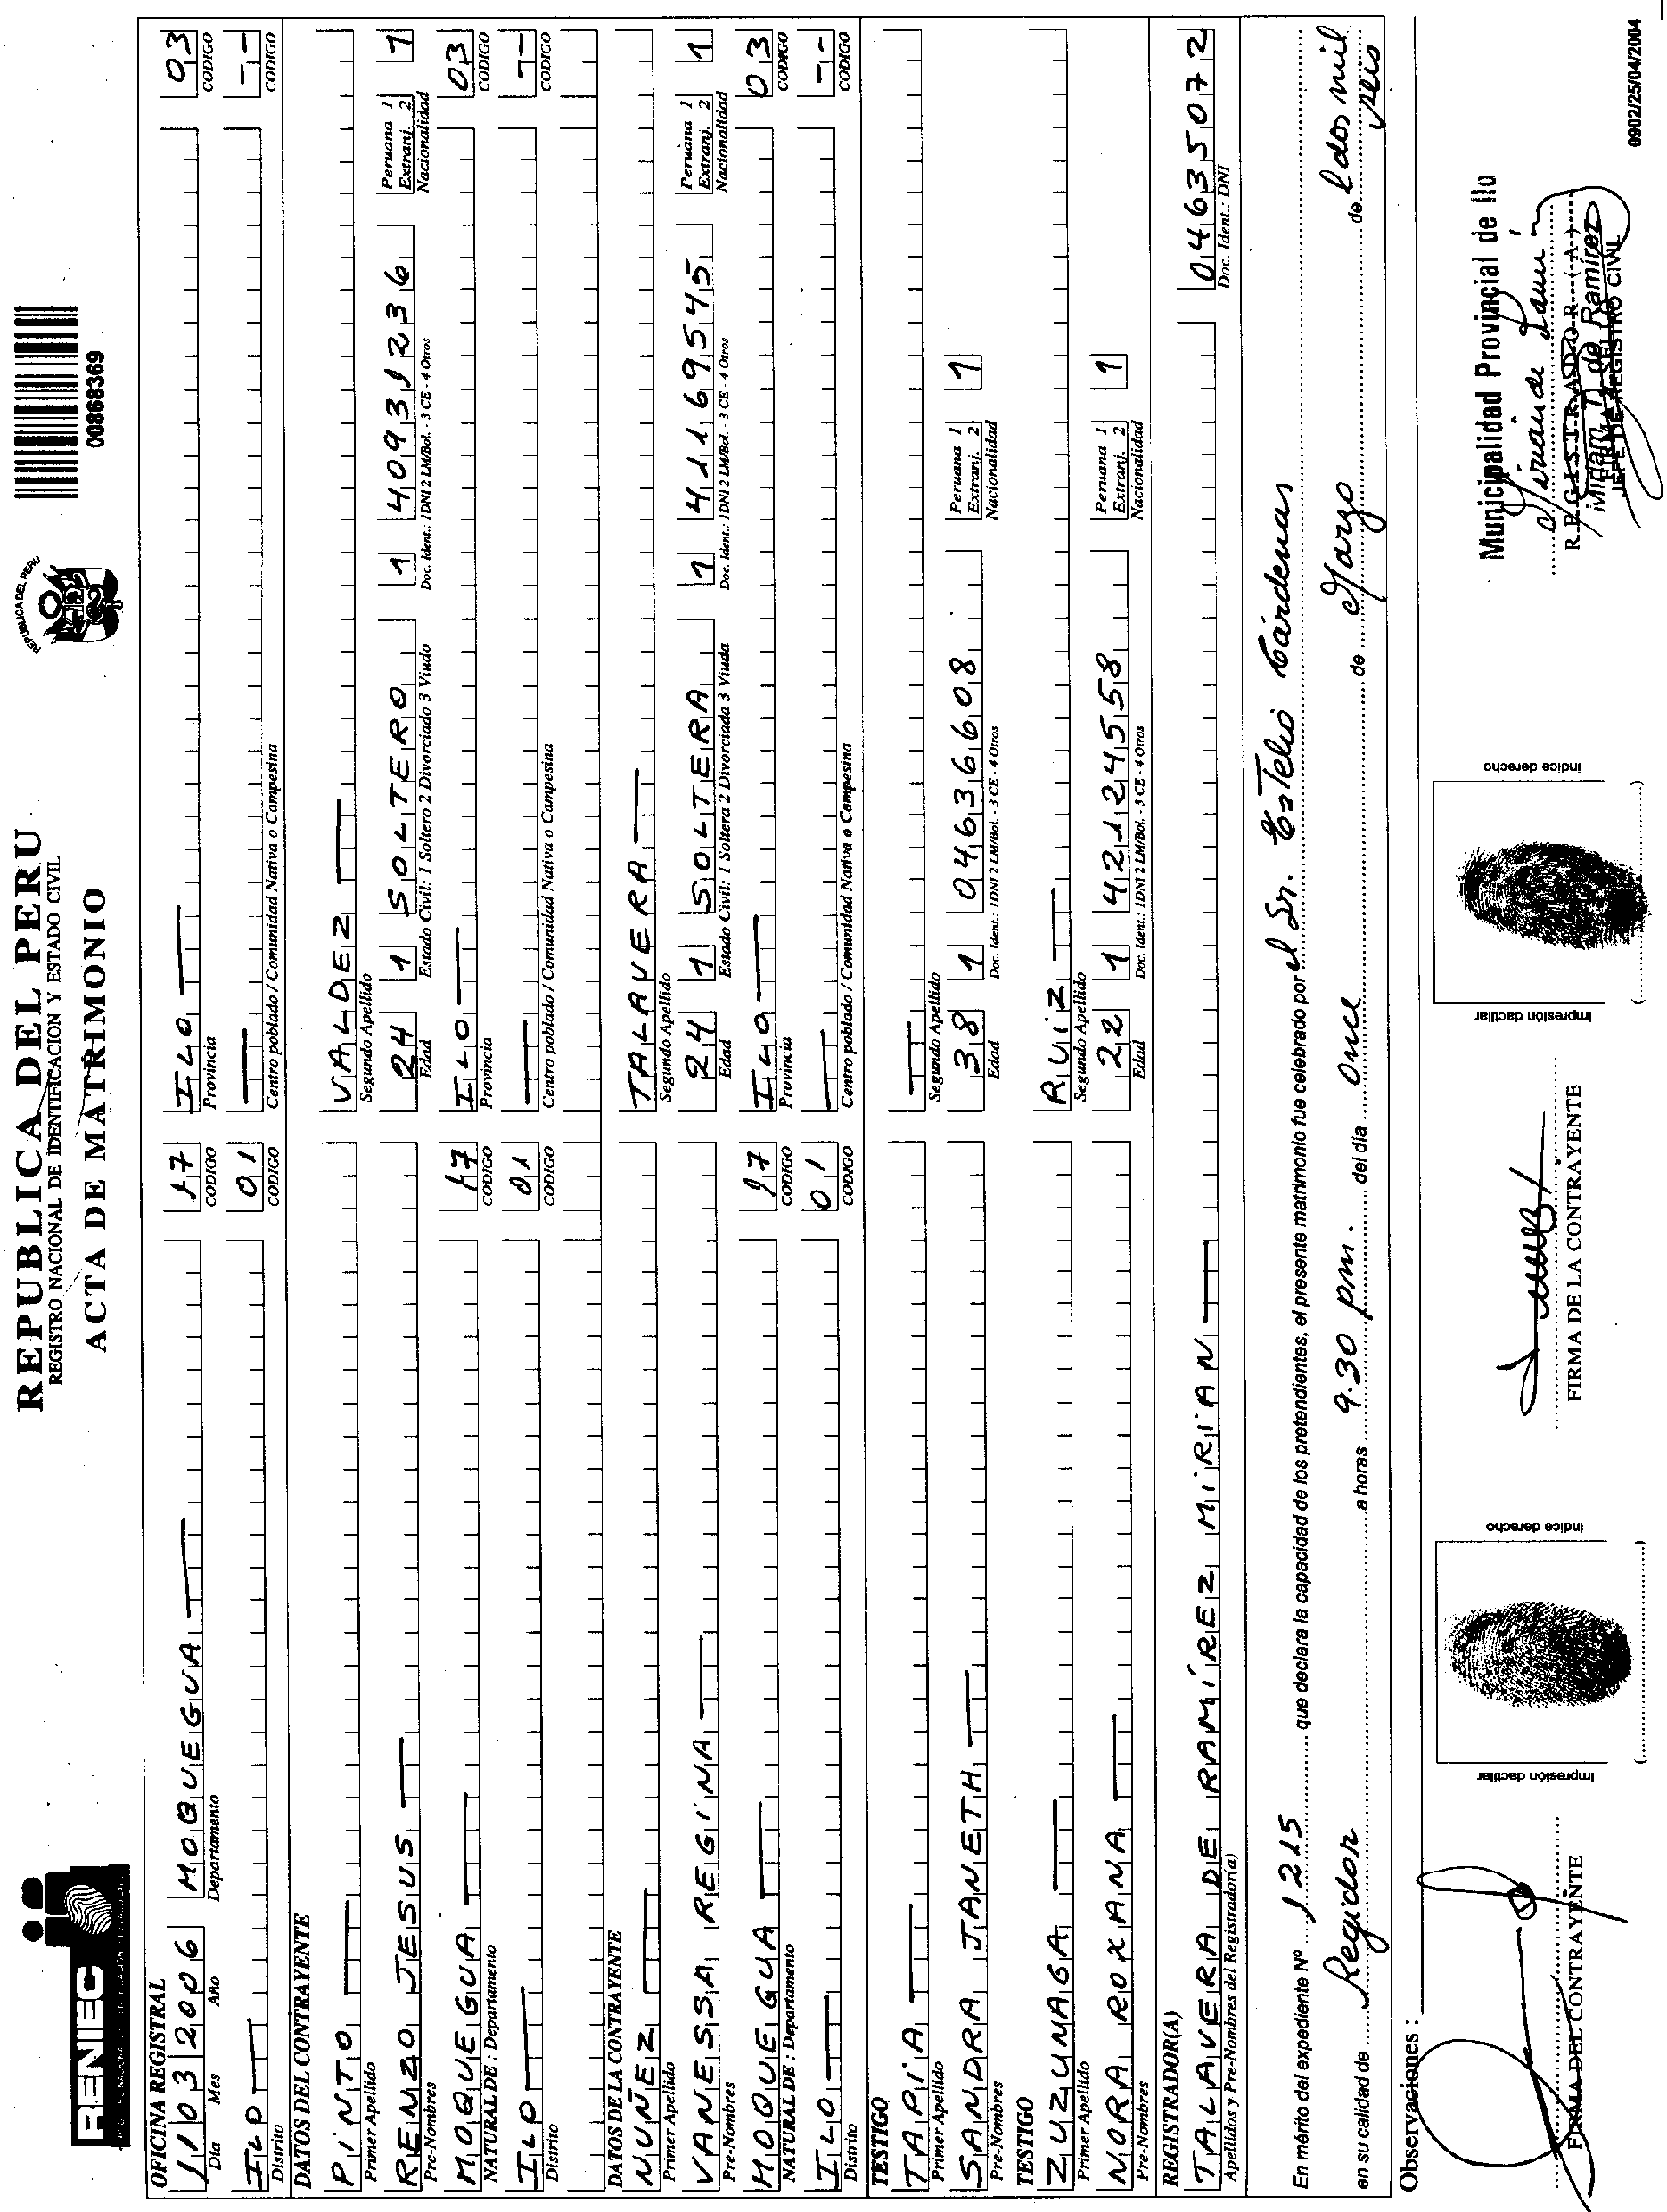 RENIEC
REPUBLICA DEL PERU
REGISTRO NACIONAL DE IDENTIFICACION Y ESTADO CIVIL
ACTA DE MATRIMONIO
REPUBLICA DEL PERU
00868369
OFICINA REGISTRAL
11 03 2006 MOQUEGUA 17 ILO 03
Día Mes Año Departamento CODIGO Provincia CODIGO
ILO 01 --
Distrito CODIGO Centro poblado / Comunidad Nativa o Campesina CODIGO
DATOS DEL CONTRAYENTE
PINTO VALDEZ
Primer Apellido Segundo Apellido
RENZO JESUS 24 1 SOLTERO 1 40931236 Peruana 1 Extranj. 2 1
Pre-Nombres Edad Estado Civil: 1 Soltero 2 Divorciado 3 Viudo Doc. Ident.: 1DNI 2 LM/Bol. - 3 CE - 4 Otros Nacionalidad
MOQUEGUA 17 ILO 03
NATURAL DE : Departamento CODIGO Provincia CODIGO
ILO 01 --
Distrito CODIGO Centro poblado / Comunidad Nativa o Campesina CODIGO
DATOS DE LA CONTRAYENTE
NUÑEZ TALAVERA
Primer Apellido Segundo Apellido
VANESSA REGINA 24 1 SOLTERA 1 41169545 Peruana 1 Extranj. 2 1
Pre-Nombres Edad Estado Civil: 1 Soltera 2 Divorciada 3 Viuda Doc. Ident.: 1DNI 2 LM/Bol. - 3 CE - 4 Otros Nacionalidad
MOQUEGUA 17 ILO 03
NATURAL DE : Departamento CODIGO Provincia CODIGO
ILO 01 --
Distrito CODIGO Centro poblado / Comunidad Nativa o Campesina CODIGO
TESTIGO
TAPIA
Primer Apellido Segundo Apellido
SANDRA JANETH 38 1 04636608 Peruana 1 Extranj. 2 1
Pre-Nombres Edad Doc. Ident.: 1DNI 2 LM/Bol. - 3 CE - 4 Otros Nacionalidad
TESTIGO
ZUZUNAGA RUIZ
Primer Apellido Segundo Apellido
NORA ROXANA 22 1 42124558 Peruana 1 Extranj. 2 1
Pre-Nombres Edad Doc. Ident.: 1DNI 2 LM/Bol. - 3 CE - 4 Otros Nacionalidad
REGISTRADOR(A)
TALAVERA DE RAMÍREZ MIRIAN 04635072
Apellidos y Pre-Nombres del Registrador(a) Doc. Ident.: DNI
En mérito del expediente Nº 1215 que declara la capacidad de los pretendientes, el presente matrimonio fue celebrado por el Sr. Estelio Cárdenas
en su calidad de Regidor a horas 9.30 pm. del día Once de Marzo de dos mil seis
Observaciones :
FIRMA DEL CONTRAYENTE
Impresión dactilar
índice derecho
FIRMA DE LA CONTRAYENTE
Impresión dactilar
índice derecho
Municipalidad Provincial de Ilo
REGISTRADOR (A)
Miriam T. de Ramírez
JEFE DE REGISTRO CIVIL
0902/25/04/2004